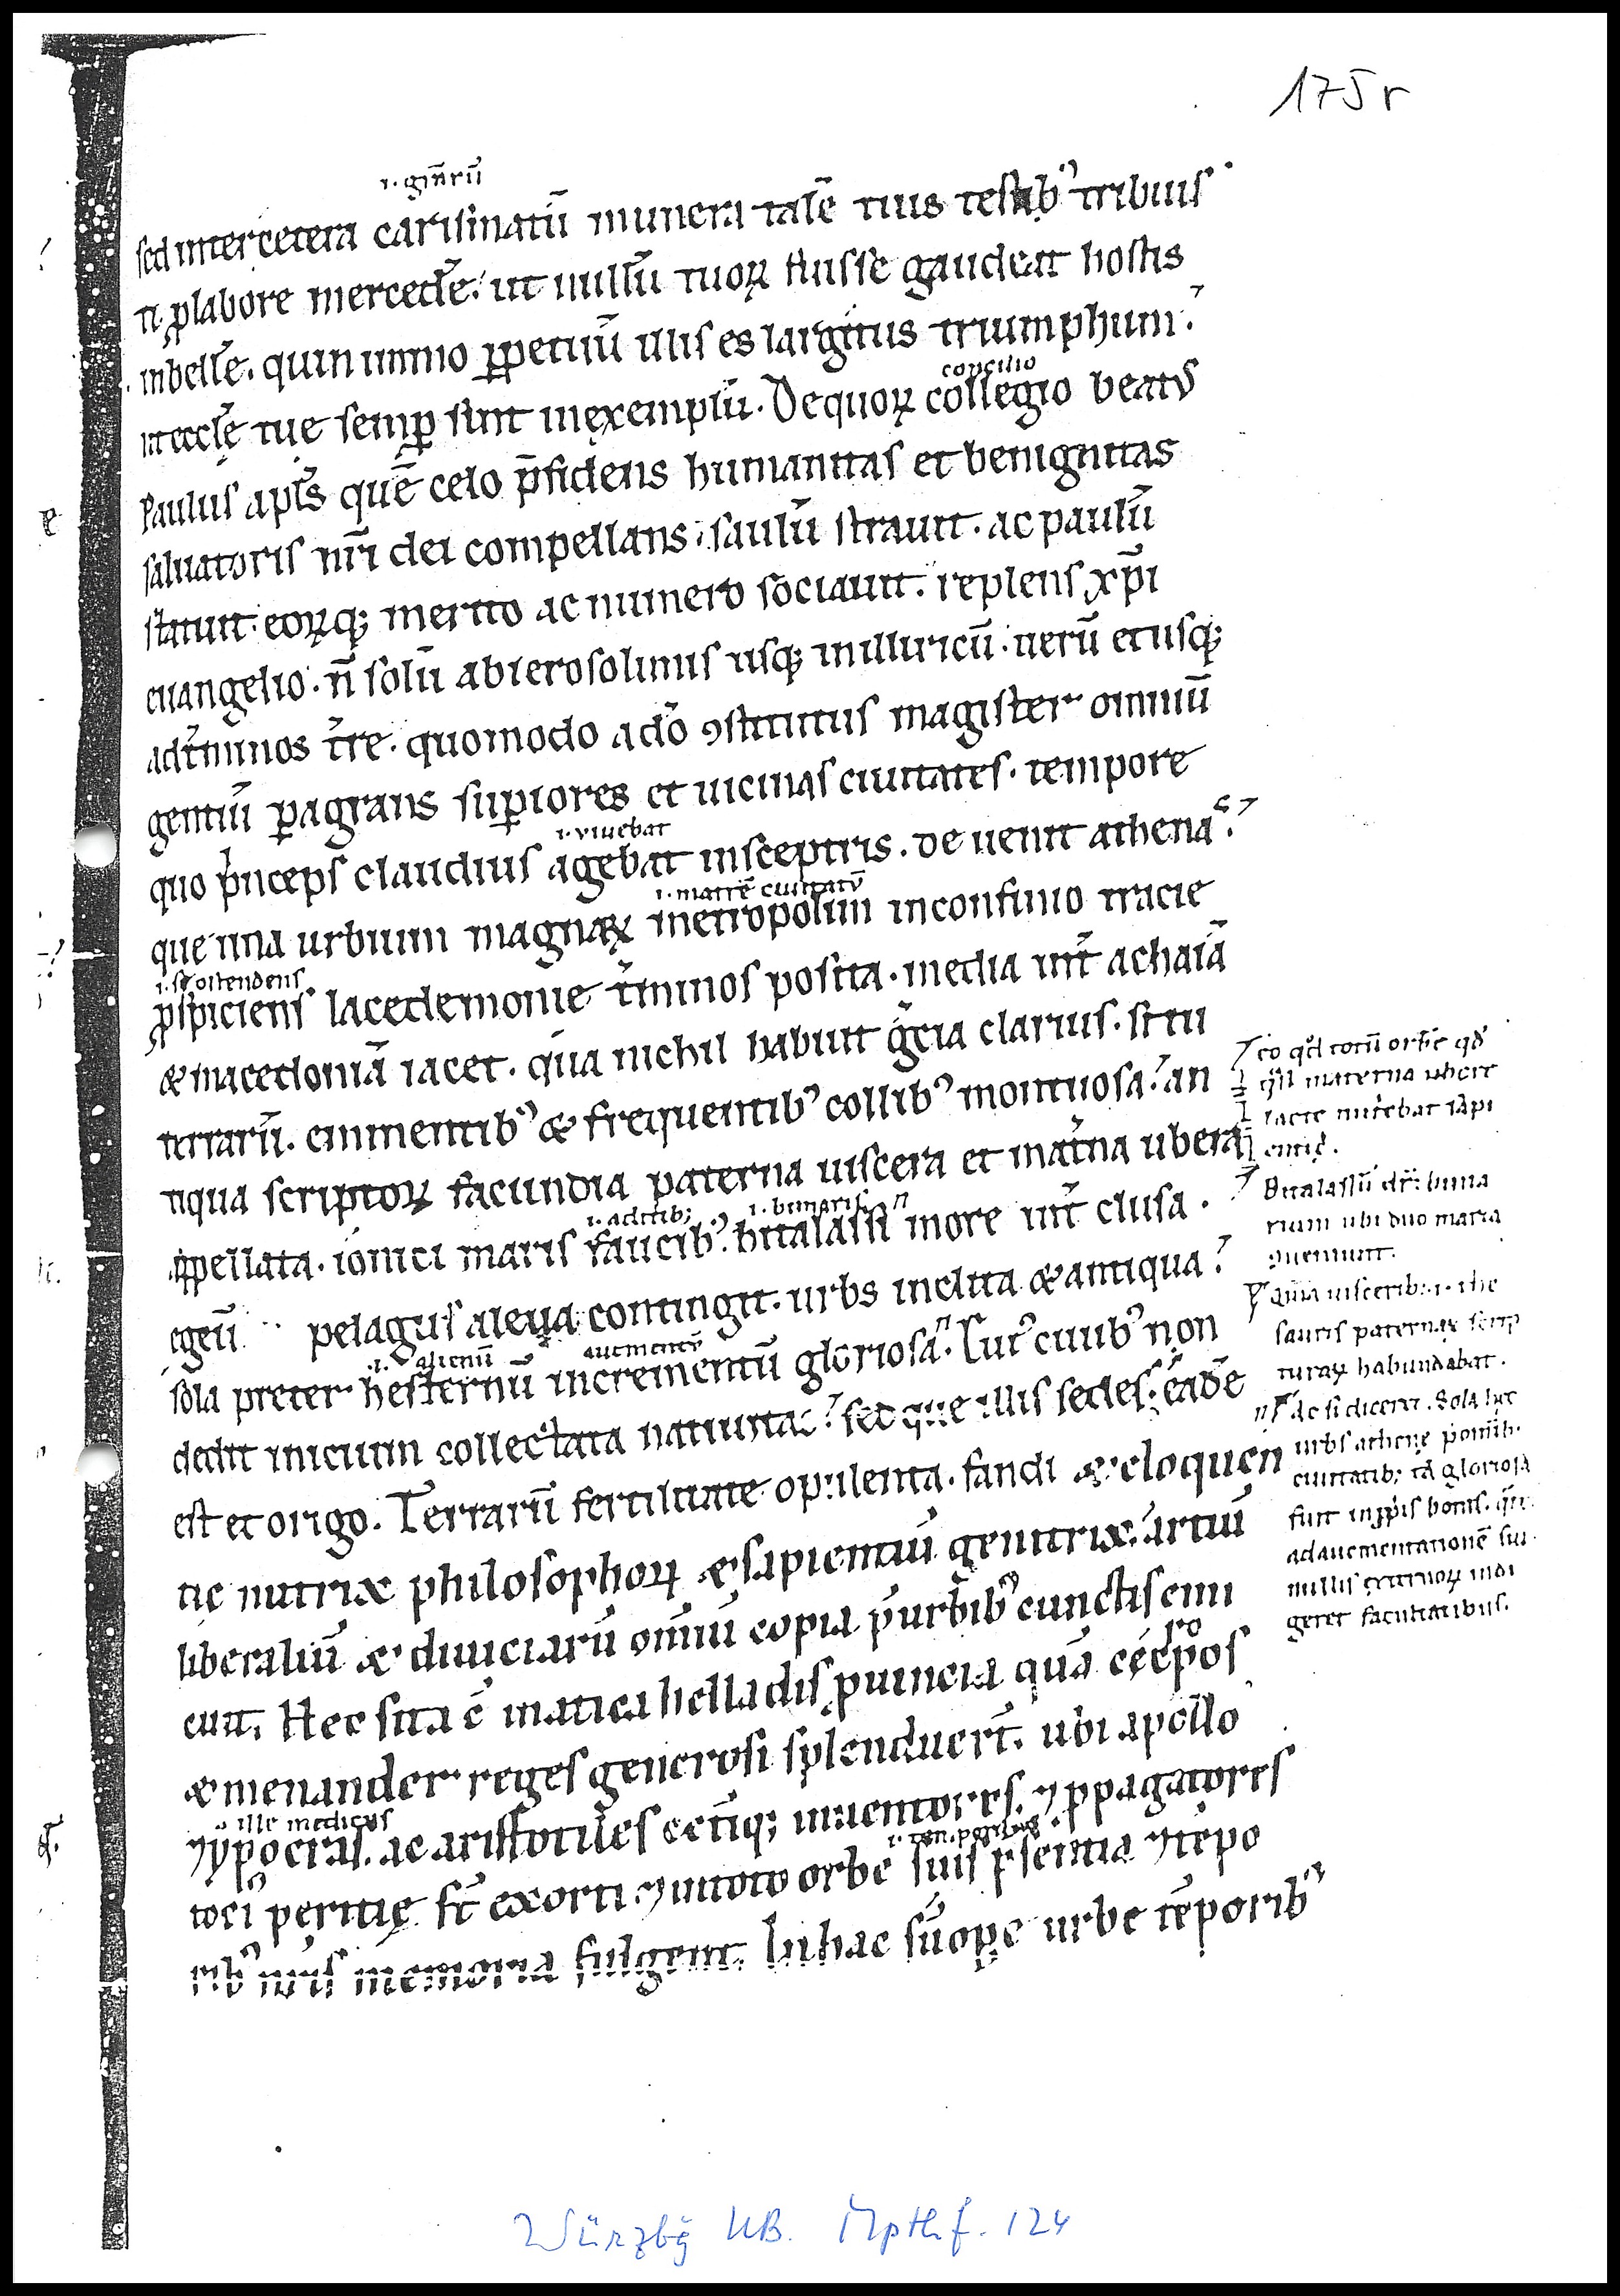 175 r
.i. gn̄rū
sed inter cetera carismatū munera talē tuis testib᾽ tribuis
ti ꝓ labore mercedē. ut nullū tuoꝝ fuisse gaudeat hostis
inbellē. quin immo ꝑpetuū illis es largitus triumphum.
concilio
ut eccłę tue semꝑ sint in exemplū. De quoꝝ collegio beatus
Paulus apłs quē celo p̄sidens humanitas et benignitas
saluatoris nr̄i dei compellans. saulū strauit. ac paulū
statuit. eoꝝq; merito ac numero sociauit. replens xp̄i
euangelio. n̄ solū ab ierosolimis usq; in illuricū. uerū et usq;
ad t̄minos t̄re. quomodo a dō ꝯstitutus magister omniū
gentiū ꝑagrans suꝑiores et uicinas ciuitates. tempore
.i. viuebat
quo p̄nceps claudius agebat in sceptris. deuenit athenas.
.i. matrē ciuitatū
que una urbium magnaꝝ metropolim in confinio tracie
.i. se ostendens
ꝓspiciens lacedemonie t̄minos posita. media int̄ achaiā
& macedoniā iacet. qua nichil habuit grecia clarius. situ
terrarū. eminentib᾽ & frequentib᾽ collib᾽ montuosa. an
tiqua scriptoꝝ facundia paterna uiscera et mat̄na ubera
.i. aditib; .i. bimaris
appellata. ionici maris faucib᾽. bitalassi more int̄ clusa.
egeū pelagus aleua contingit. urbs inclita & antiqua
.i. alienū augmentū
sola preter hesternū incrementū gloriosa. Cui᾽ ciuib᾽ non
dedit inicium collectata natiuitas. sed que illis sedes. eadē
est et origo. Terrarū fertilitate opulenta. fandi & eloquen
tie nutrix philosophoꝝ & sapientiū genitrix. artiū
liberaliū & diuiciarū omniū copia p̄ urbib᾽ cunctis emi
cuit. Hec sita ē in attica helladis ꝓuincia quā cecrpos
& menander reges generosi splenduert̄. ubi apollo
ille medicus
ypocras. ac aristotiles cetiq; inuentores. ⁊ ꝓpagatores
.i. temporibus
toci᾽ peritię st̄ exorti. ⁊ in toto orbe suis p̄sentia ⁊ tēpo
rib᾽ nr̄is memoria fulgent. In hac suope urbe tēporib᾽
eo qd̄ totū orbē qd̄
q̄si materna ubera
lacte nutrebat sapi
entię.
Bitalassū dr̄ bima
rium ubi duo maria
ꝯueniunt.
Quia uisceribus .i. the
sauris paternaꝝ scrip
turaꝝ habundabat.
Ac si diceret. Sola hęc
urbs athenę p̄ omib.
ciuitatib; tā gloriosa
fuit in ꝓpriis bonis. qd̄
ad augmentationē sui
nullis exterioꝝ indi
geret facultatibus.
Würzbg UB. Mpthf. 124